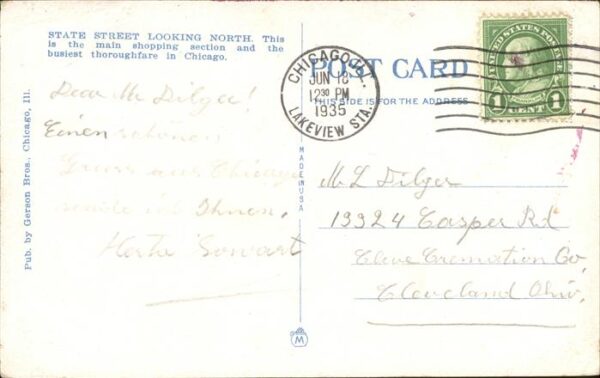 STATE STREET LOOKING NORTH. This
is the main shopping section and the
busiest thoroughfare in Chicago.
POST CARD
THIS SIDE IS FOR THE ADDRESS
CHICAGO, ILL.
JUN 18
12 30 PM
1935
LAKEVIEW STA.
UNITED STATES POSTAGE
1 CENT 1
Dear Mr Dilger!
Einen schönen
Gruss aus Chicago
sende ich Ihnen.
Pub. by Gerson Bros., Chicago, Ill.
MADE IN USA
M L Dilger
13324 Casper Rd
Cleve Cremation Co
Cleveland Ohio.
M